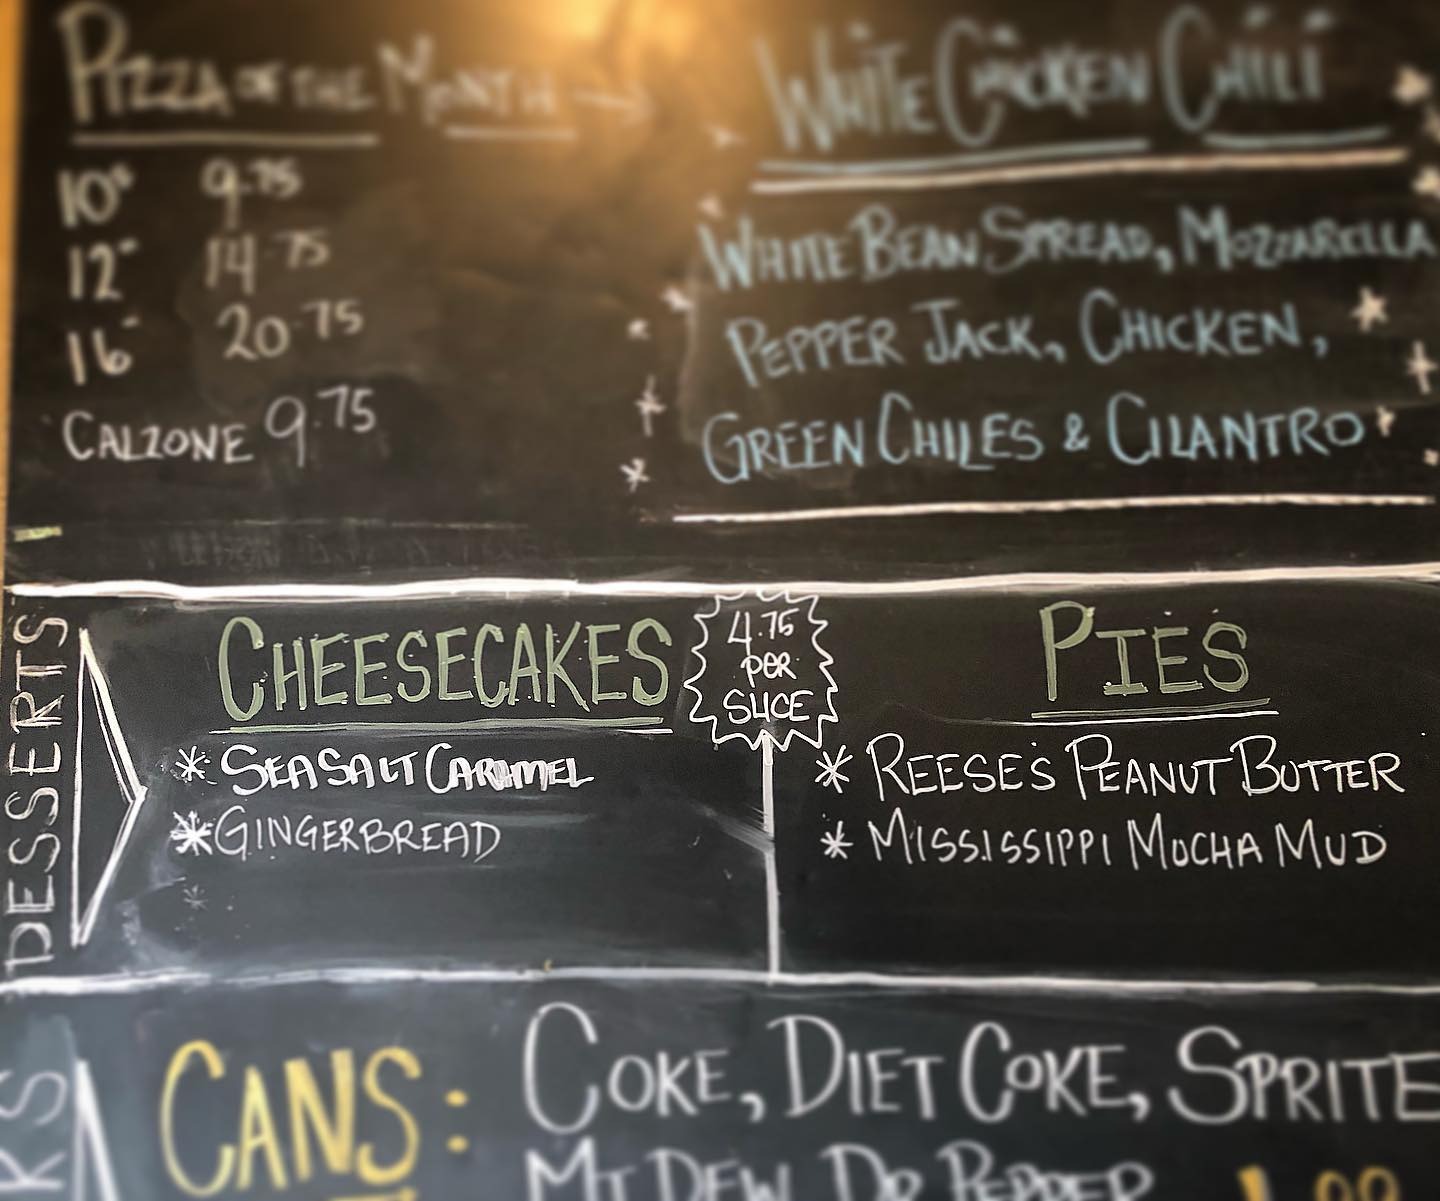 PIZZA OF THE MONTH →
10" 9.75
12" 14.75
16" 20.75
CALZONE 9.75
WHITE CHICKEN CHILI
WHITE BEAN SPREAD, MOZZARELLA
PEPPER JACK, CHICKEN,
GREEN CHILES & CILANTRO
DESSERTS
CHEESECAKES
* SEA SALT CARAMEL
* GINGERBREAD
4.75
PER
SLICE
PIES
* REESE'S PEANUT BUTTER
* MISSISSIPPI MOCHA MUD
CANS: COKE, DIET COKE, SPRITE
MT DEW, DR PEPPER